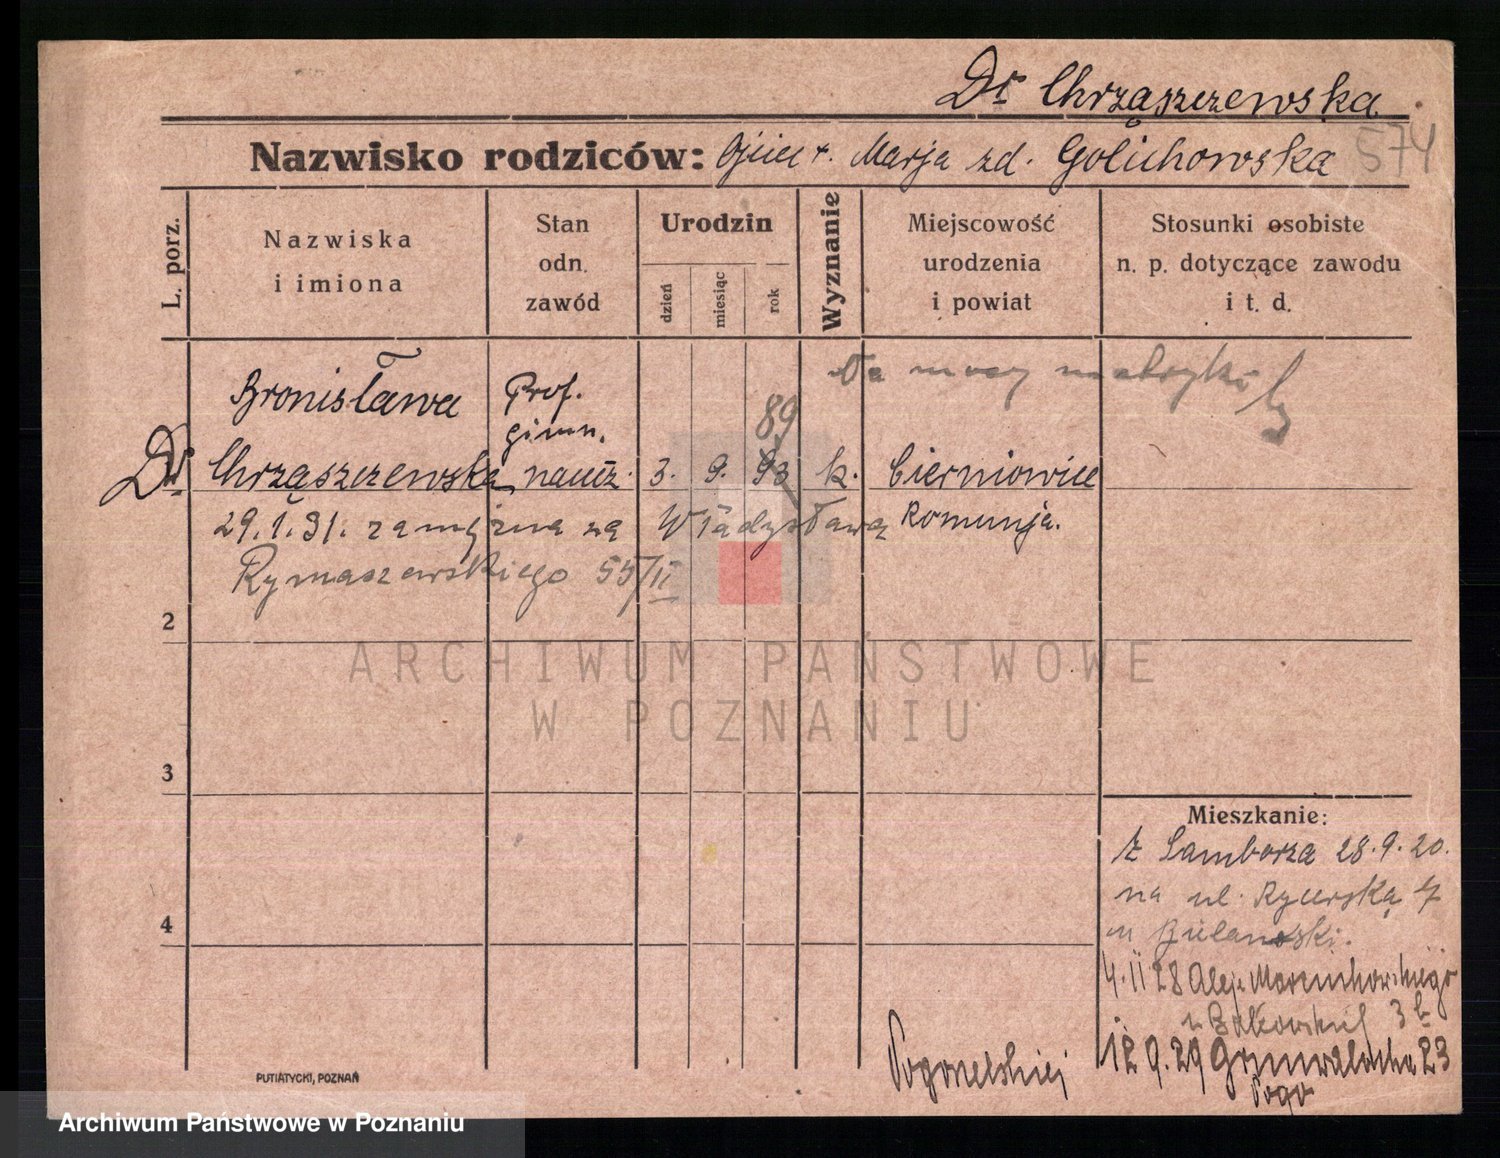 Dr Chrząszczewska
574
Nazwisko rodziców: Ojciec +. Marja zd. Golichowska
L. porz.
Nazwiska
i imiona
Stan
odn.
zawód
Urodzin
dzień
miesiąc
rok
Wyznanie
Miejscowość
urodzenia
i powiat
Stosunki osobiste
n. p. dotyczące zawodu
i t. d.
Na mocy metryki
Bronisława
Prof.
gimn.
89
Dr Chrząszczewska naucz. 3. 9. 93 k. Cierniowice
29.1.31. zamężna za Władysława
Romunja.
Rymaszewskiego 55/II
2
ARCHIWUM PAŃSTWOWE
W POZNANIU
3
Mieszkanie:
Z Sambora 28.9.20.
na ul. Rycerską
4
4.II 28 Alej. Marcinkowskiego
3b
12.9.29 Grunwaldzka 23
PUTIATYCKI, POZNAŃ
Archiwum Państwowe w Poznaniu